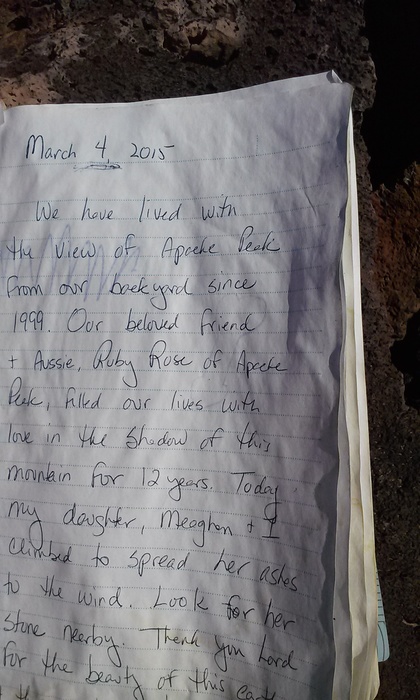 March 4, 2015
We have lived with
the view of Apache Peak
from our backyard since
1999. Our beloved friend
+ Aussie, Ruby Rose of Apache
Peak, filled our lives with
love in the shadow of this
mountain for 12 years. Today
my daughter, Meaghan + I
climbed to spread her ashes
to the wind. Look for her
stone nearby. Thank you Lord
for the beauty of this